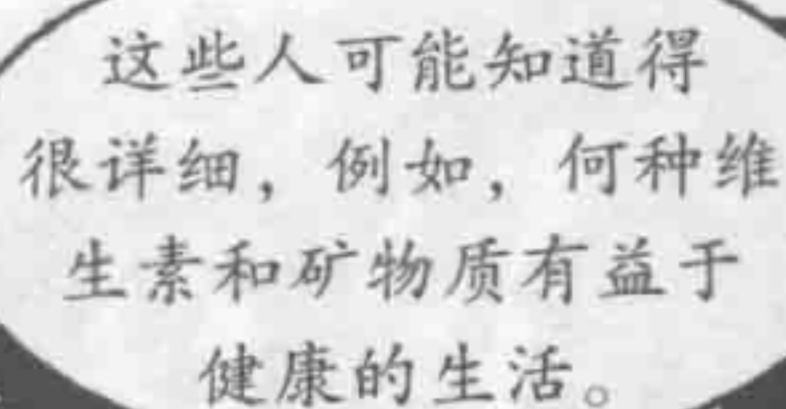 这些人可能知道得
很详细，例如，何种维
生素和矿物质有益于
健康的生活。